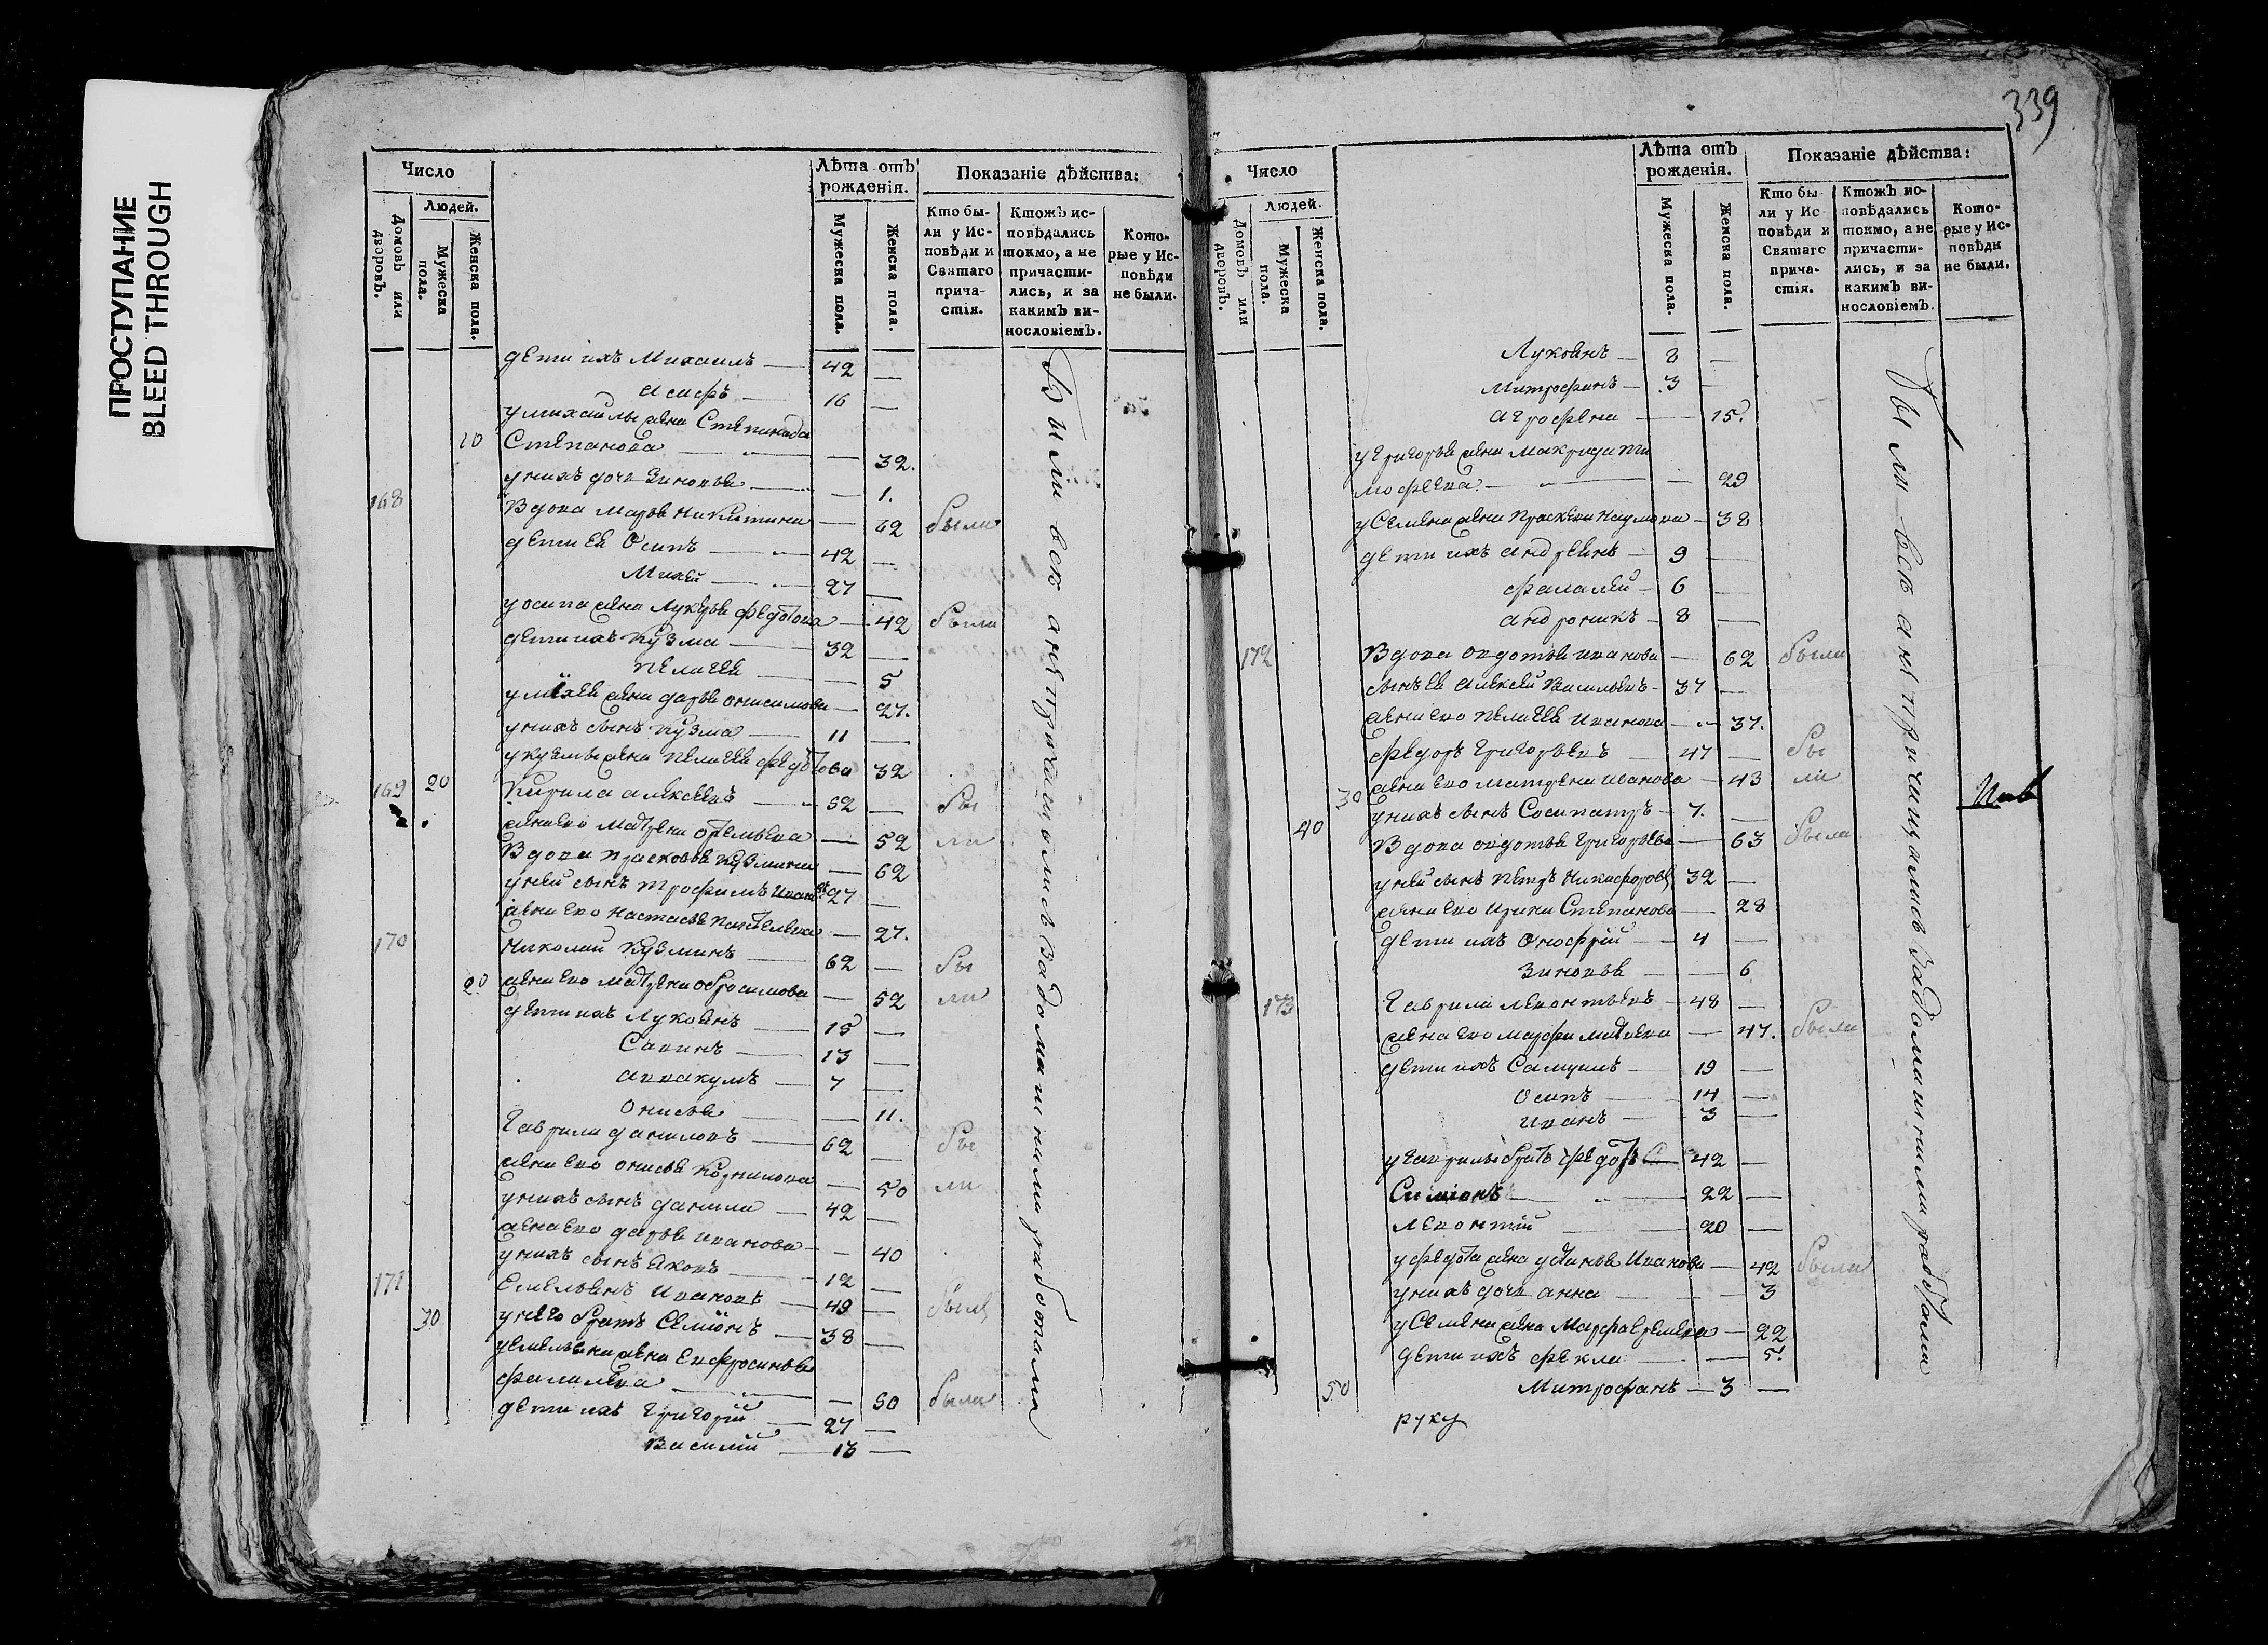 ПРОСТУПАНИЕ
BLEED THROUGH
Число
Людей.
Домовъ или дворовъ.
Мужеска пола.
Женска пола.
Лѣта отъ рожденія.
Мужеска пола.
Женска пола.
Показаніе дѣйства:
Кто бы-
ли у Ис-
повѣди и
Святаго
прича-
стія.
Ктожъ ис-
повѣдались
токмо, а не
причасти-
лись, и за
какимъ ви-
нословіемъ.
Кото-
рые у Ис-
повѣди
не были.
дети ихъ Михаилъ — 42 —
Исифъ — 16 —
у михаилы жена Степанида
10 Степанова — — 32.
у нихъ дочь Зиновья — — 1.
168 Вдова Марья Никитина — 62 были
дети ея Осипъ — 42 —
Михей — 27 —
у осипа жена Лукерья федотова — 42 были
дети ихъ Кузма — 32 —
Пелагея — — 5
у михея жена дарья онисимова — 27.
у нихъ сынъ Кузма — 11 —
у кузмы жена Пелагея федотова 32
169 20 Кирила алексеевъ — 52 — бы
жена ево Матрена ортемьева — 52 ли
Вдова Прасковья Кузмина — 62
у ней сынъ трофимъ Ивановъ 27 —
жена ево Настасья Пантелеева — 27.
170 Николай Кузминъ — 62 — бы
20 жена ево матрена обросимова — 52 ли
дети ихъ Лукоянъ — 15 —
Савинъ — 13 —
аввакумъ — 7 —
Онисья — — 11.
Гаврила даниловъ — 62 — бы
жена ево онисья Корнилова — 50 ли
у нихъ сынъ данила — 42 —
жена ево дарья иванова — — 40
у нихъ сынъ Яковъ — 12 —
171 Емельянъ Ивановъ — 49 — были
30 у него братъ Семионъ — 38 —
у емельяна жена Ефросинья
фалалеева — — 50 были
дети ихъ Григорій — 27 —
Василій — 13 —
Были всѣ а не причащались за домашними работами
339
Число
Людей.
Домовъ или дворовъ.
Мужеска пола.
Женска пола.
Лѣта отъ рожденія.
Мужеска пола.
Женска пола.
Показаніе дѣйства:
Кто бы-
ли у Ис-
повѣди и
Святаго
прича-
стія.
Ктожъ ис-
повѣдались
токмо, а не
причасти-
лись, и за
какимъ ви-
нословіемъ.
Кото-
рые у Ис-
повѣди
не были.
Лукоянъ — 8 —
Митрофанъ — 3 —
агрофена — — 15.
у григорья жена макрида ти
мофеева — — 29
у Семена жена Прасковья Наумова — 38
дети ихъ андреянъ — 9 —
фалалей — 6 —
андроникъ — 8 —
172 Вдова овдотья иванова — 62 были
сынъ ея алексей Васильевъ — 37 —
жена ево Пелагея Иванова — 37.
федоръ Григорьевъ — 47 — бы
жена ево матрена иванова — 43 ли
30 у нихъ сынъ Сосипатръ — 7. —
40 Вдова овдотья Григорьева — 63 были
у ней сынъ Петръ Никифоровъ 32 —
жена ево Ирина Степанова — 28
дети ихъ Онофрій — 4 —
Зиновья — — 6
173 Гаврила леонтьевъ — 48 —
жена ево марфа матвеева — 47. были
дети ихъ Самуилъ — 19 —
Осипъ — 14 —
иванъ — 3 —
у гаврилы братъ федотъ — 42 —
Симионъ — 22 —
леонтій — 20 —
у федота жена устинья Иванова — 42 были
у нихъ дочь анна — — 3
у Семена жена Марфа еремеева — 22
дети ихъ фекла — — 5.
50 Митрофанъ — 3 —
Были всѣ а не причащались за домашними работами
руку